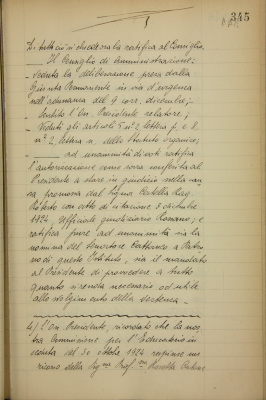 345
Di tutto ciò si chiede ora la ratifica al Consiglio.
Il Consiglio di Amministrazione;
veduta la deliberazione presa dalla
Giunta Permanente in via d'urgenza
nell'adunanza del 9 corr. dicembre;
Sentito l'On. Presidente relatore;
Veduti gli articoli 5 n° 2 lettera f. e 8.
n° 2 lettera n. dello Statuto organico;
ad unanimità di voti ratifica
l'autorizzazione come sopra conferita al
Presidente a stare in giudizio nella cau
sa promossa dal Signor Rag.
con atto di citazione 3 dicembre
1924, Ufficiale giudiziario Romano; e
ratifica pure ad unanimità sia la
nomina del Senatore a Patro
no di questo Istituto, sia il mandato
al Presidente di provvedere a tutto
quanto si renda necessario od utile
allo svolgimento della vertenza.
4) L'On. Presidente, ricordato che la no
stra Commissione per l'Educatorio in
seduta del 30 ottobre 1924
della Sig.na Prof.ssa